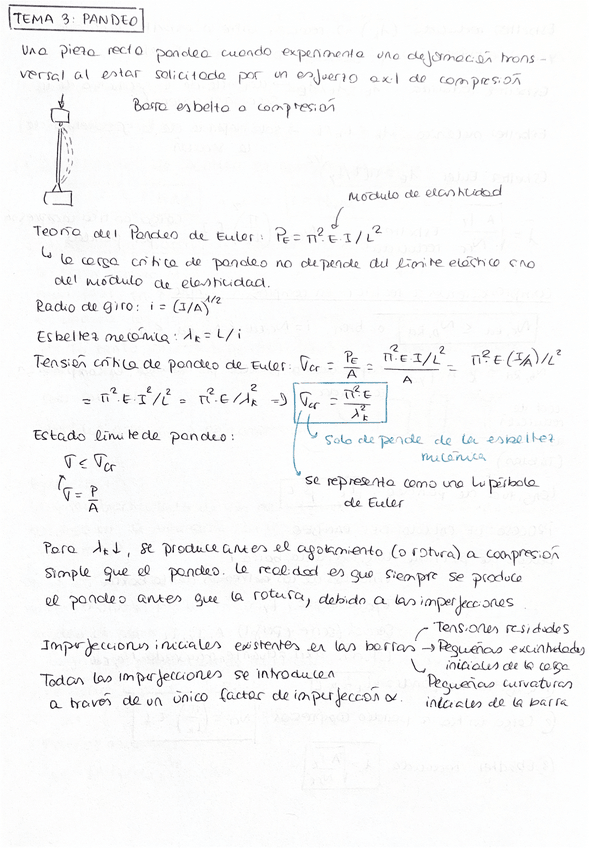 TEMA 3: PANDEO
Una pieza recta pandea cuando experimenta una deformación trans-
versal al estar solicitada por un esfuerzo axil de compresión
Barra esbelta a compresión
Módulo de elasticidad
Teoría del Pandeo de Euler: P_E = π²·E·I/L²
↳ la carga crítica de pandeo no depende del límite elástico sino
del módulo de elasticidad.
Radio de giro: i = (I/A)^1/2
Esbeltez mecánica: λ_k = L/i
Tensión crítica de pandeo de Euler: σ_cr = P_E/A = (π²·E·I/L²)/A = π²·E(I/A)/L²
= π²·E·I²/L² = π²·E/λ_k² => σ_cr = π²·E/λ_k²
Estado límite de pandeo:
Solo depende de la esbeltez
mecánica
σ ≤ σ_cr
σ = P/A
se representa como una hipérbola
de Euler
Para λ_k↓, se produce antes el agotamiento (o rotura) a compresión
simple que el pandeo. La realidad es que siempre se produce
el pandeo antes que la rotura, debido a las imperfecciones.
Imperfecciones iniciales existentes en las barras
→ Tensiones residuales
→ Pequeñas excentricidades
iniciales de la carga
→ Pequeñas curvaturas
iniciales de la barra
Todas las imperfecciones se introducen
a través de un único factor de imperfección α.